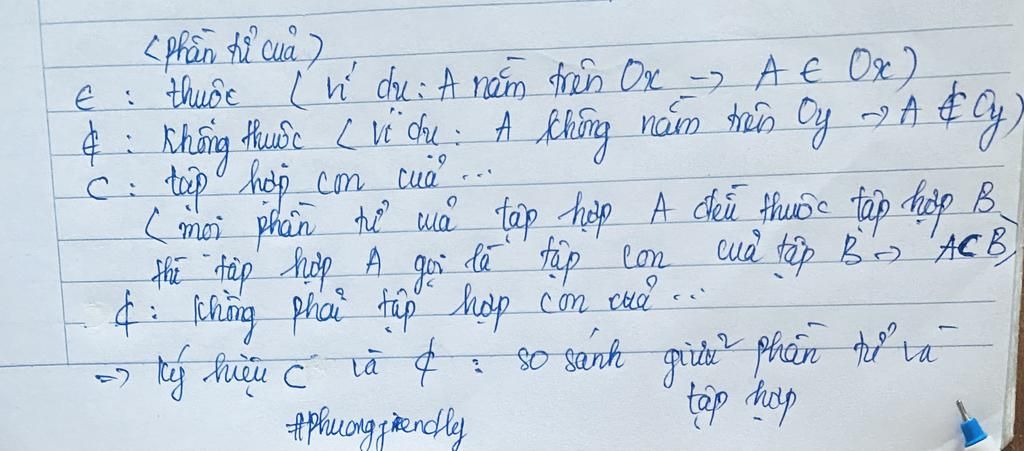 (phần tử của)
∈ : thuộc ( ví dụ : A nằm trên Ox → A ∈ Ox )
∉ : Không thuộc ( ví dụ : A không nằm trên Oy → A ∉ Oy )
⊂ : tập hợp con của ...
( mọi phần tử của tập hợp A đều thuộc tập hợp B
thì tập hợp A gọi là tập con của tập B → A⊂B )
⊄ : Không phải tập hợp con của ...
⇒ Ký hiệu ⊂ và ⊄ : so sánh giữa 2 phần tử và
tập hợp
#phuongfriendly